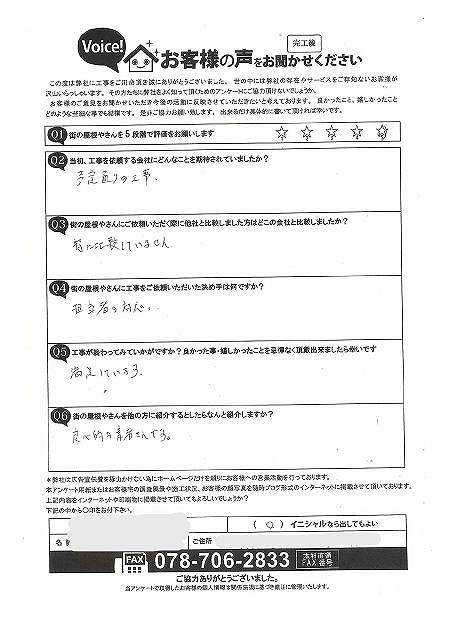 Voice!
お客様の声をお聞かせください
完工後
この度は弊社に工事をご用命頂き誠にありがとうございました。世の中には弊社の存在やサービスをご存知ないお客様が
沢山いらっしゃいます。その方たちに弊社をよく知って頂くためのアンケートにご協力頂けないでしょうか。
お客様のご意見をお聞かせいただき今後の活動に反映させていただきたいと考えております。良かったこと、嬉しかったこと
どのような些細な事でも結構です。是非ご協力お願い致します。出来るだけ具体的に書いて頂ければ幸いです。
Q1 街の屋根やさんを5段階で評価をお願いします
☆ ☆ ☆ ☆ ☆
Q2 当初、工事を依頼する会社にどんなことを期待されていましたか?
予定通りの工事。
Q3 街の屋根やさんにご依頼いただく際に他社と比較しました方はどこの会社と比較しましたか?
特に比較していません
Q4 街の屋根やさんに工事をご依頼いただいた決め手は何ですか?
担当者の対応。
Q5 工事が終わってみていかがですか?良かった事・嬉しかったことを忌憚なく頂戴出来ましたら幸いです
満足している。
Q6 街の屋根やさんを他の方に紹介するとしたらなんと紹介しますか?
良心的な業者さんです。
*弊社は広告宣伝費を極力かけない為にホームページだけを頼りにお客様への営業活動を行っております。
本アンケート用紙またはお客様宅の調査風景や施工状況、お客様の顔写真を随時ブログ形式のインターネットに掲載させて頂いております。
上記内容をインターネットや印刷物に掲載させて頂いてもよろしいでしょうか?
下記の中から〇印をお付下さい。
( ○ ) イニシャルなら出してもよい
ご住所
FAX 078-706-2833 本村直通 FAX番号
ご協力ありがとうございました。
当アンケートで取得したお客様の個人情報は関係法規に基づき厳正に管理いたします。